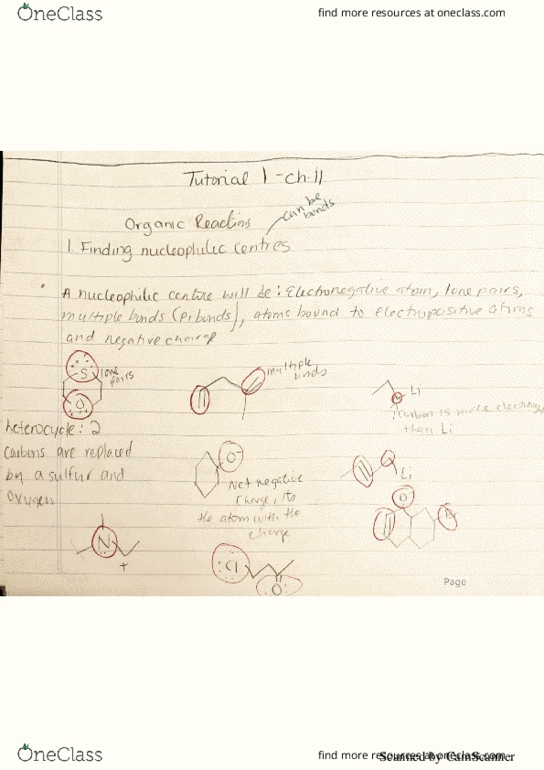 OneClass
find more resources at oneclass.com
Tutorial 1 - ch.11
can be
bonds
Organic Reactins
1. Finding nucleophilic centres
• A nucleophilic centre will be: Electronegative atom, lone pairs,
multiple bonds (Pi bonds), atoms bound to electropositive atoms
and negative charge
S
lone
pairs
O
multiple
bonds
Li
carbon is more
then Li
heterocycle: 2
carbons are replaced
by a sulfur and
oxygen
O-
Net negative
charge, its
the atom with the
charge
Li
O
N
+
:Cl
:O:
Page
OneClass
find more resources at oneclass.com
Scanned by CamScanner